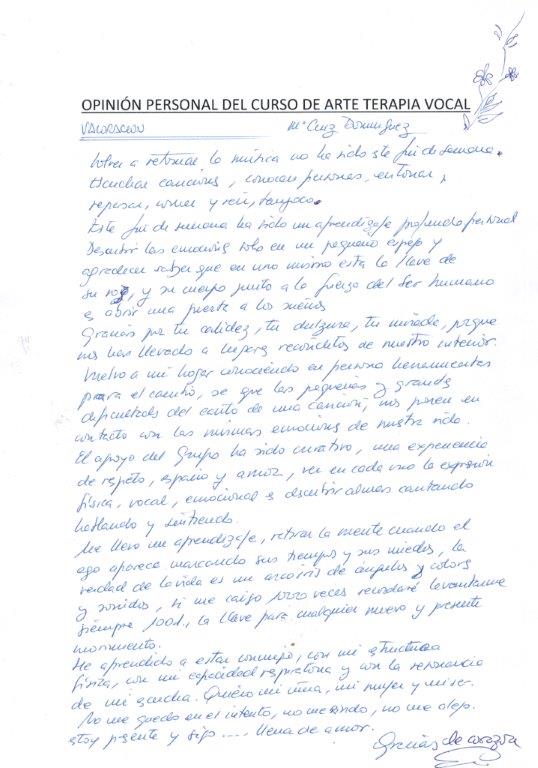 OPINIÓN PERSONAL DEL CURSO DE ARTE TERAPIA VOCAL
VALORACION Mª Cruz Dominguez
Volver a retomar la música no ha sido este fin de semana.
Escuchar canciones, conocer personas, entonar,
reposar, comer y reir, tampoco.
Este fin de semana ha sido un aprendizaje profundo personal
Descubrir las emociones solo en un pequeño espejo y
agradecer saber que en uno mismo esta la llave de
su voz, y su cuerpo junto a la fuerza del Ser humano
es abrir una puerta a los sueños
Gracias por tu calidez, tu dulzura, tu mirada, porque
nos has llevado a lugares recónditos de nuestro interior.
Vuelvo a mi hogar conociendo en persona
para el camino, se que las pequeñas y grandes
dificultades del canto de una canción, nos ponen en
contacto con las mismas emociones de nuestra vida.
El apoyo del Grupo ha sido curativo, una experiencia
de respeto, espacio y amor, ver en cada uno la expresión
física, vocal, emocional es descubrir almas cantando
hablando y sintiendo.
Me llevo un aprendizaje, retirar la mente cuando el
ego aparece marcando sus tiempos y sus miedos, la
verdad de la vida es un arcoiris de ángulos y colores
y sonidos, si me caigo 1000 veces recordaré levantarme
siempre 1001, la llave para cualquier nuevo y presente
momento.
He aprendido a estar conmigo, con mi structura
física, con mi capacidad respiratoria y con la resonancia
de mi escucha. Quiero mi niña, mi mujer y mi ser.
No me quedo en el intento, no me rindo, no me alejo.
estoy presente y sigo .... llena de amor.
Gracias de corazón